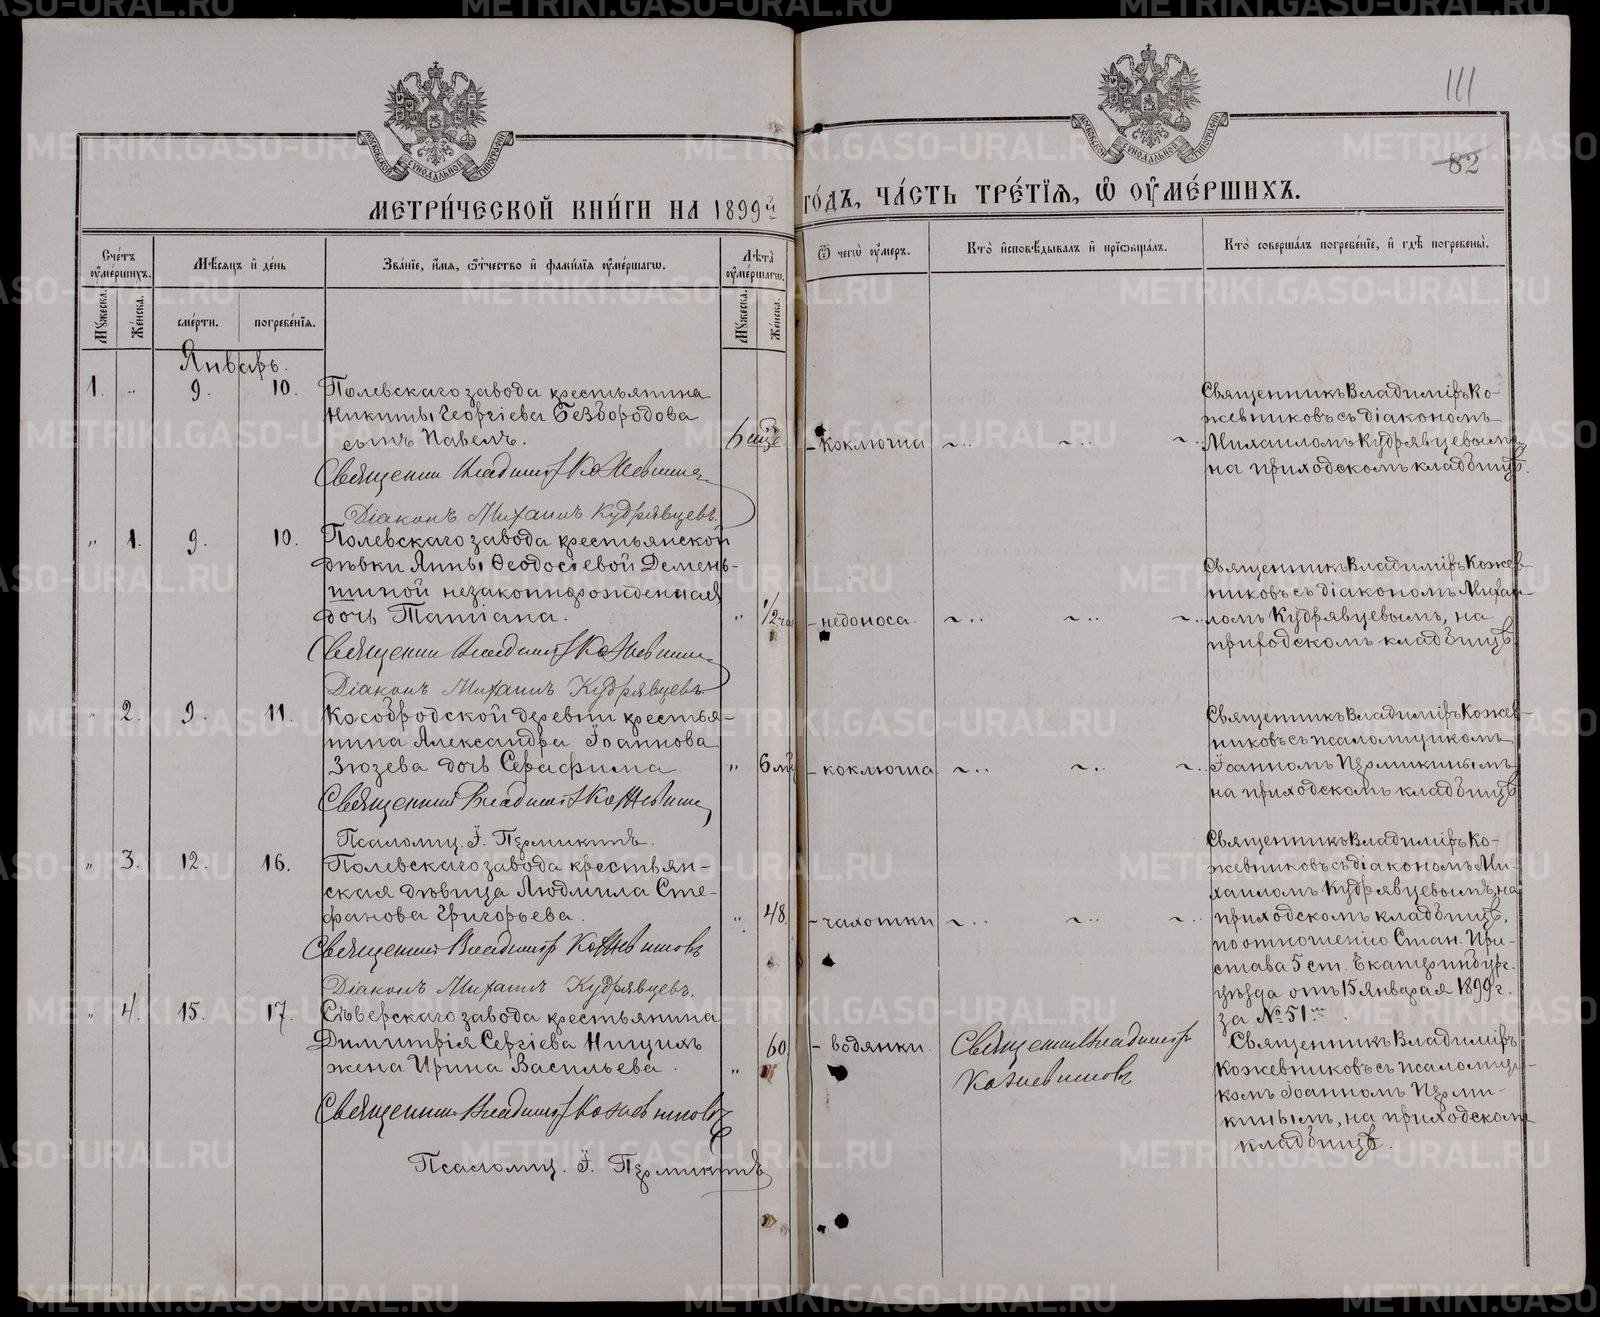 111
82
МОСКОВСКОЙ СѴНОДАЛЬНОЙ ТИПОГРАФІИ
МОСКОВСКОЙ СѴНОДАЛЬНОЙ ТИПОГРАФІИ
МЕТРИ́ЧЕСКОЙ КНИ́ГИ НА 1899й ГО́ДЪ, ЧА́СТЬ ТРЕ́ТІѦ, Ѡ҆ ОУ҆МЕ́РШИХЪ.
Сче́тъ оу҆ме́ршихъ.
Мꙋ́жеска.
Же́нска.
Мѣ́сѧцъ и҆ де́нь
сме́рти.
погребе́нїѧ.
Зва́нїе, и҆́мѧ, ѻ҆́тчество и҆ фами́лїѧ оу҆ме́ршагѡ.
Лѣ́та̀ оу҆ме́ршагѡ.
Мꙋ́жеска.
Же́нска.
Ѿ чегѡ̀ оу҆́меръ.
Кто̀ и҆сповѣ́дывалъ и҆ прїѡбща́лъ.
Кто̀ соверша́лъ погребе́нїе, и҆ гдѣ̀ погребены̀.
Январь.
1. „ 9. 10. Полевскаго завода крестьянина
Никиты Георгіева Безбородова
сынъ Павелъ. 6 мцѣ - коклюша
Священникъ Владиміръ Кожевников
Діаконъ Михаилъ Кудрявцевъ.
Священникъ Владиміръ Ко-
жевниковъ съ діакономъ
Михаиломъ Кудрявцевымъ,
на приходскомъ кладбищѣ.
„ 1. 9. 10. Полевскаго завода крестьянской
дѣвки Анны Ѳеодосіевой Демень-
шиной незаконнорожденная
дочь Татіана. „ 1/2 час - недоноса.
Священникъ Владиміръ Кожевников
Діаконъ Михаилъ Кудрявцевъ
Священникъ Владиміръ Кожев-
никовъ съ діакономъ Михаи-
ломъ Кудрявцевымъ, на
приходскомъ кладбищѣ.
„ 2. 9. 11. Кособродской деревни крестья-
нина Александра Іоаннова
Зюзева дочь Серафима „ 6 мц - коклюша
Священникъ Владиміръ Кожевников
Псаломщ. І. Пермикинъ.
Священникъ Владиміръ Кожев-
никовъ съ псаломщикомъ
Іоанномъ Пермикинымъ
на приходскомъ кладбищѣ
„ 3. 12. 16. Полевскаго завода крестьян-
ская дѣвица Людмила Сте-
фанова Григорьева. „ 48. - чахотки
Священникъ Владиміръ Кожевниковъ
Діаконъ Михаилъ Кудрявцевъ.
Священникъ Владиміръ Ко-
жевниковъ съ діакономъ Ми-
хаиломъ Кудрявцевымъ, на
приходскомъ кладбищѣ,
по отношенію Стан. При-
става 5 ст. Екатеринбург.
уѣзда отъ 15 Января 1899 г.
за № 51мъ.
„ 4. 15. 17. Сѣверскаго завода крестьянина
Димитрія Сергіева Нищихъ
жена Ирина Васильева. „ 60 - водянки.
Священникъ Владиміръ Кожевниковъ
Псаломщ. І. Пермикинъ
Священникъ Владиміръ
Кожевниковъ
Священникъ Владиміръ
Кожевниковъ съ псаломщи-
комъ Іоанномъ Перми-
кинымъ, на приходскомъ
кладбищѣ.
METRIKI.GASO-URAL.RU